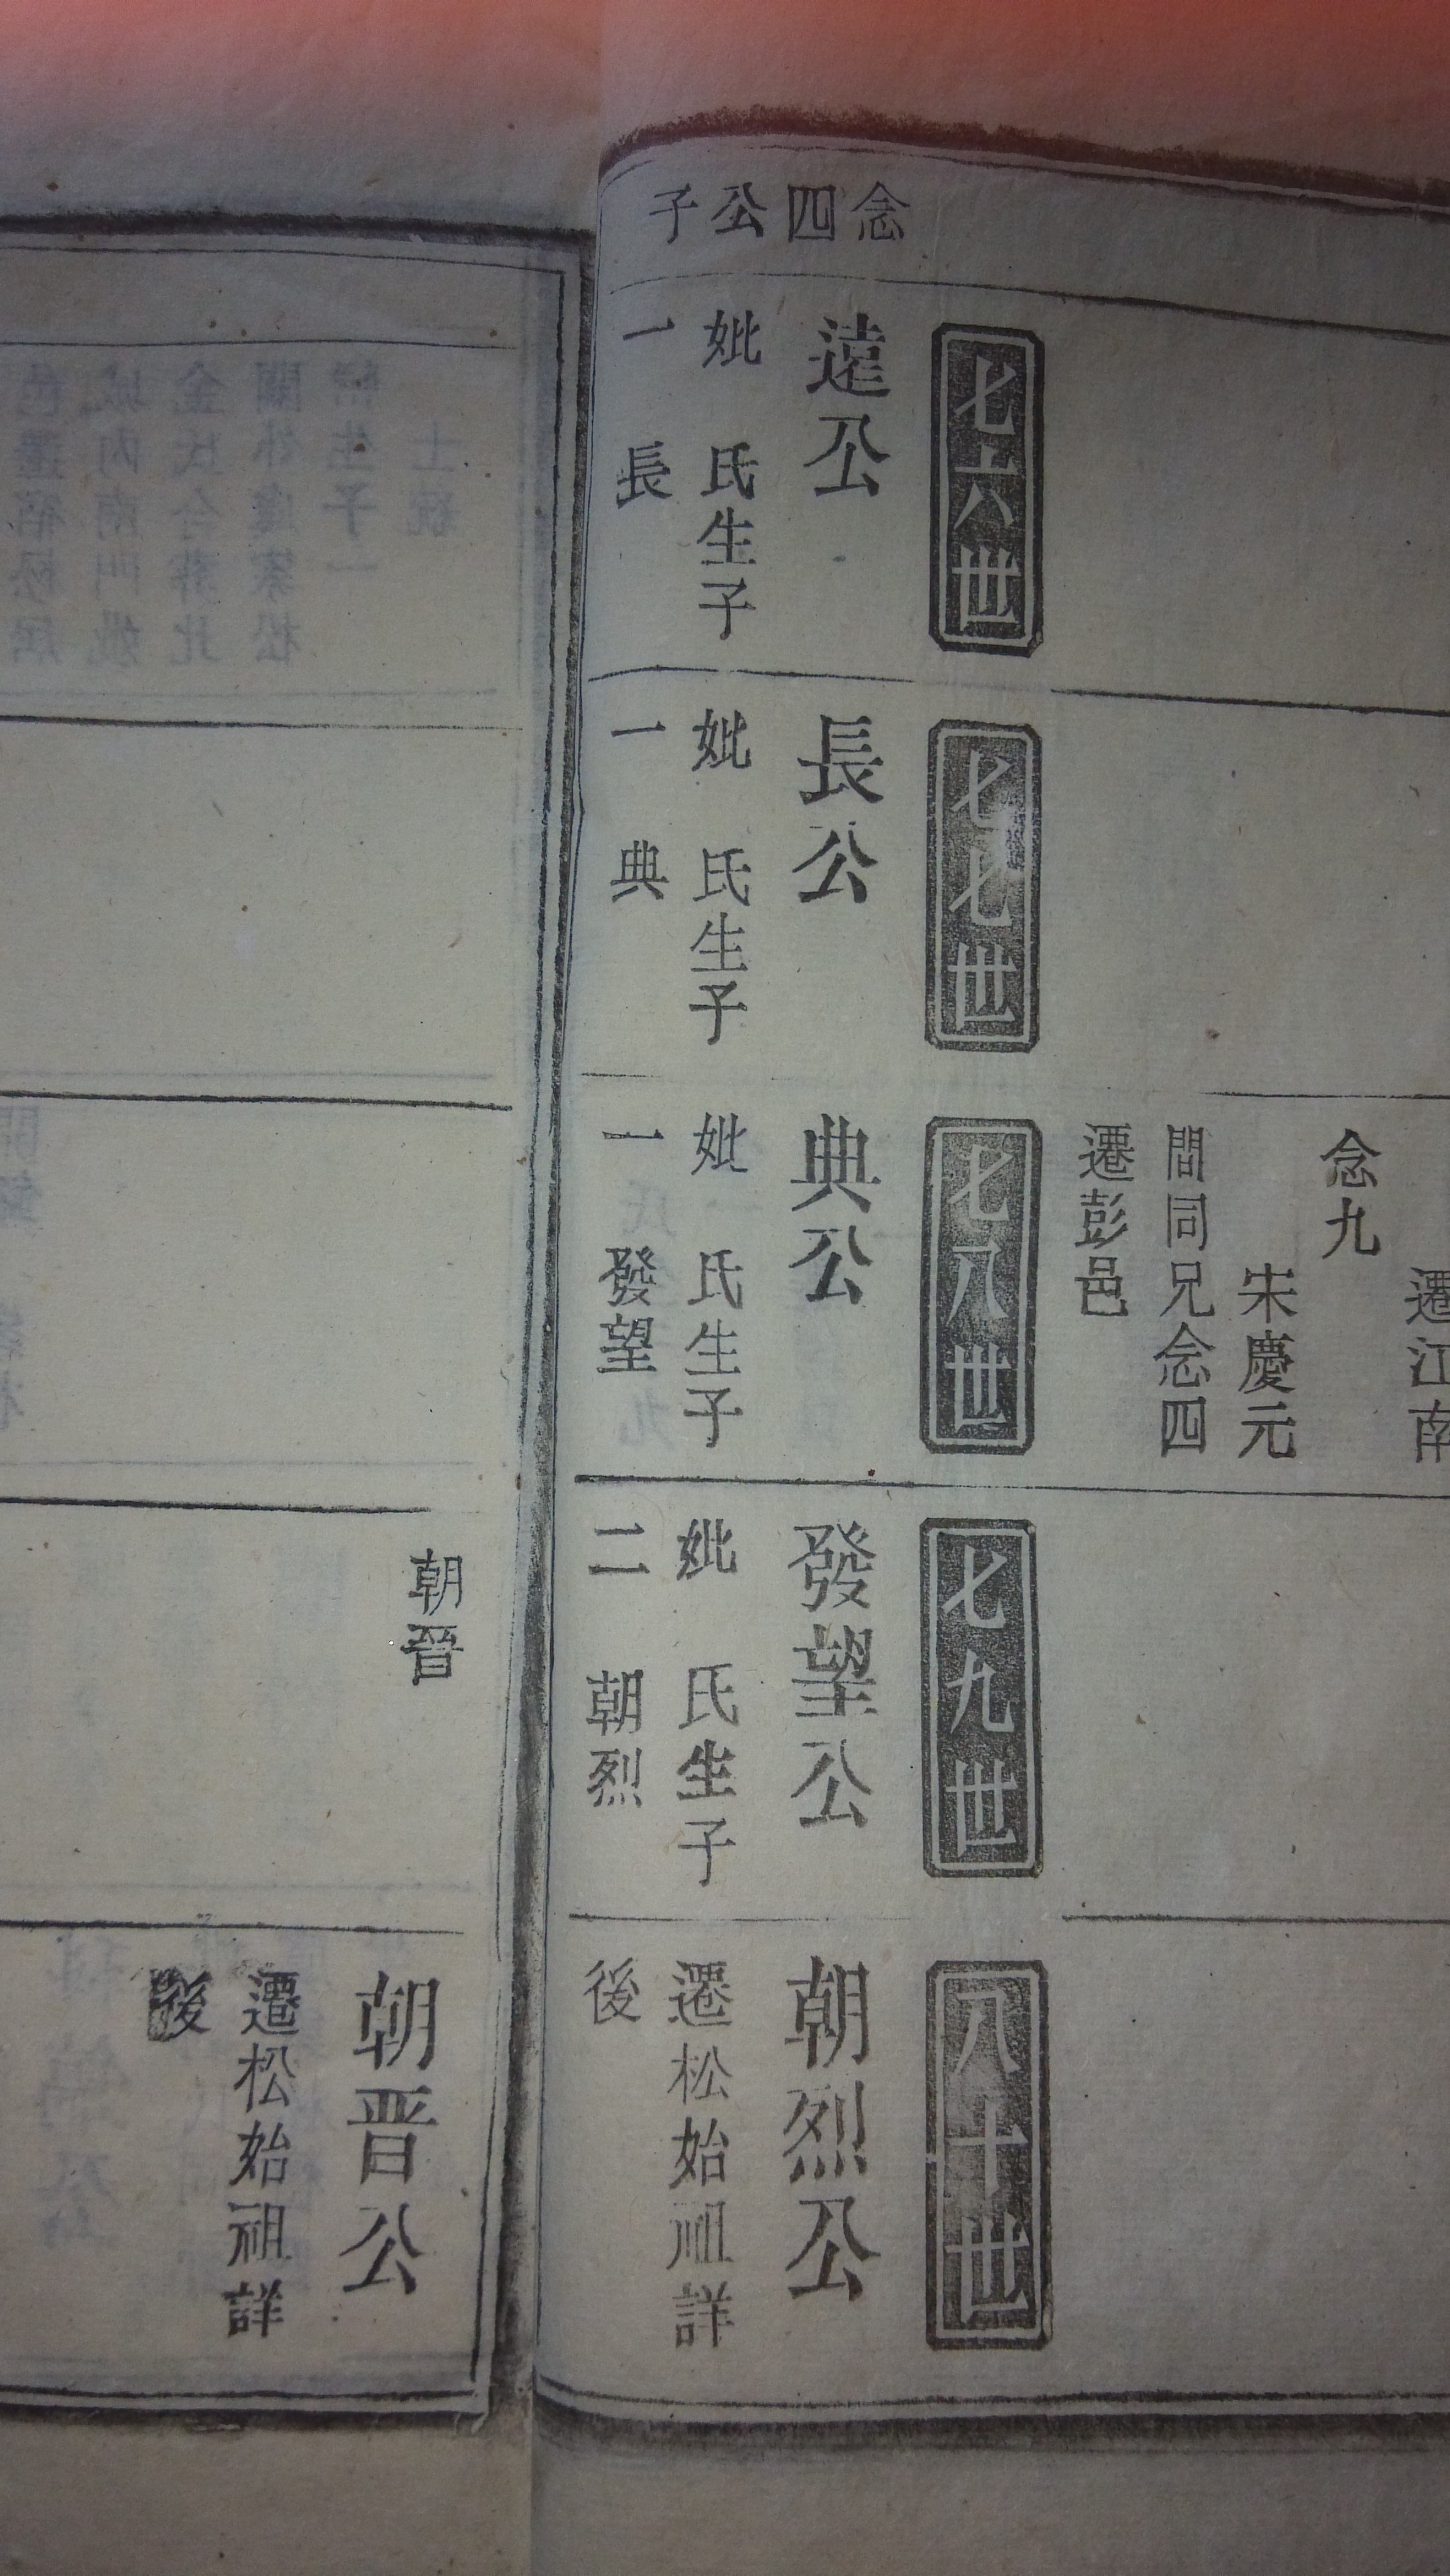 遷江南
念九
宋慶元
間同兄念四
遷彭邑
念四公子
七六世
遠公
妣 氏生子
一 長
七七世
長公
妣 氏生子
一 典
七八世
典公
妣 氏生子
一 發望
七九世
發望公
妣 氏生子
二 朝烈
朝晉
八十世
朝烈公
遷松始祖詳
後
朝晋公
遷松始祖詳
後